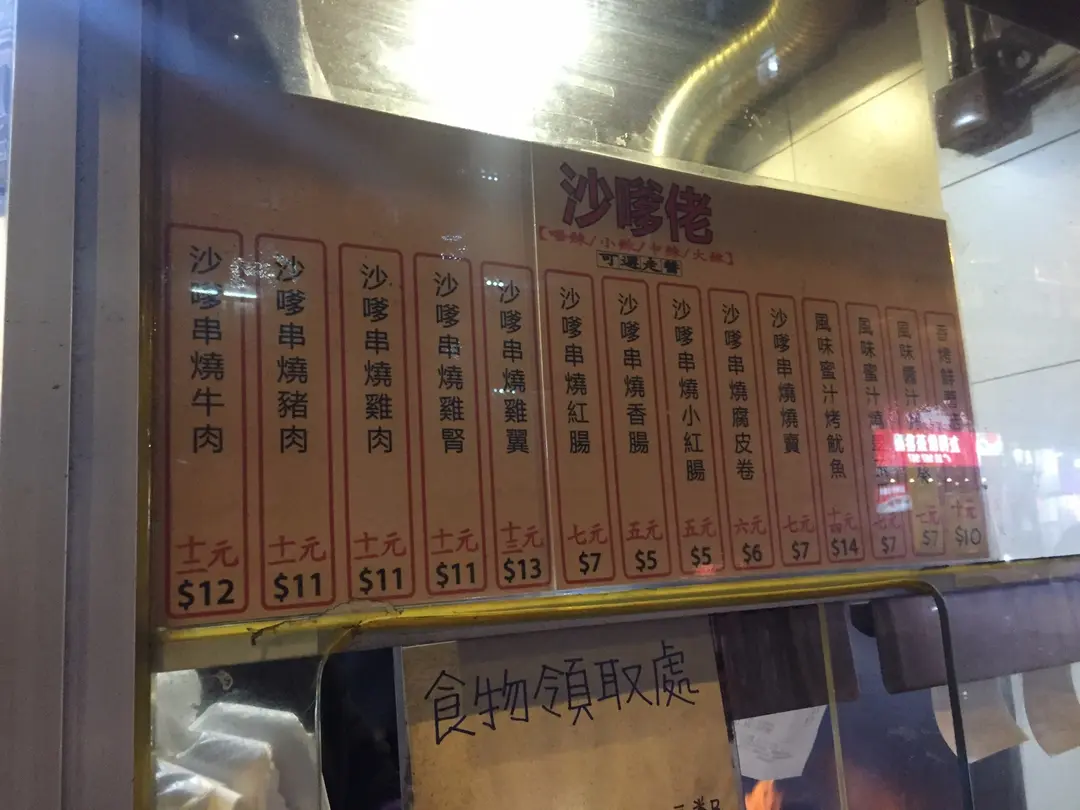 沙嗲佬
【唔辣/小辣/中辣/大辣】
可選走醬
沙嗲串燒牛肉
十二元
$12
沙嗲串燒豬肉
十一元
$11
沙嗲串燒雞肉
十一元
$11
沙嗲串燒雞腎
十一元
$11
沙嗲串燒雞翼
十三元
$13
沙嗲串燒紅腸
七元
$7
沙嗲串燒香腸
五元
$5
沙嗲串燒小紅腸
五元
$5
沙嗲串燒腐皮卷
六元
$6
沙嗲串燒燒賣
七元
$7
風味蜜汁烤魷魚
十四元
$14
風味蜜汁燒
七元
$7
風味醬汁
七元
$7
香烤鮮
十元
$10
食物領取處